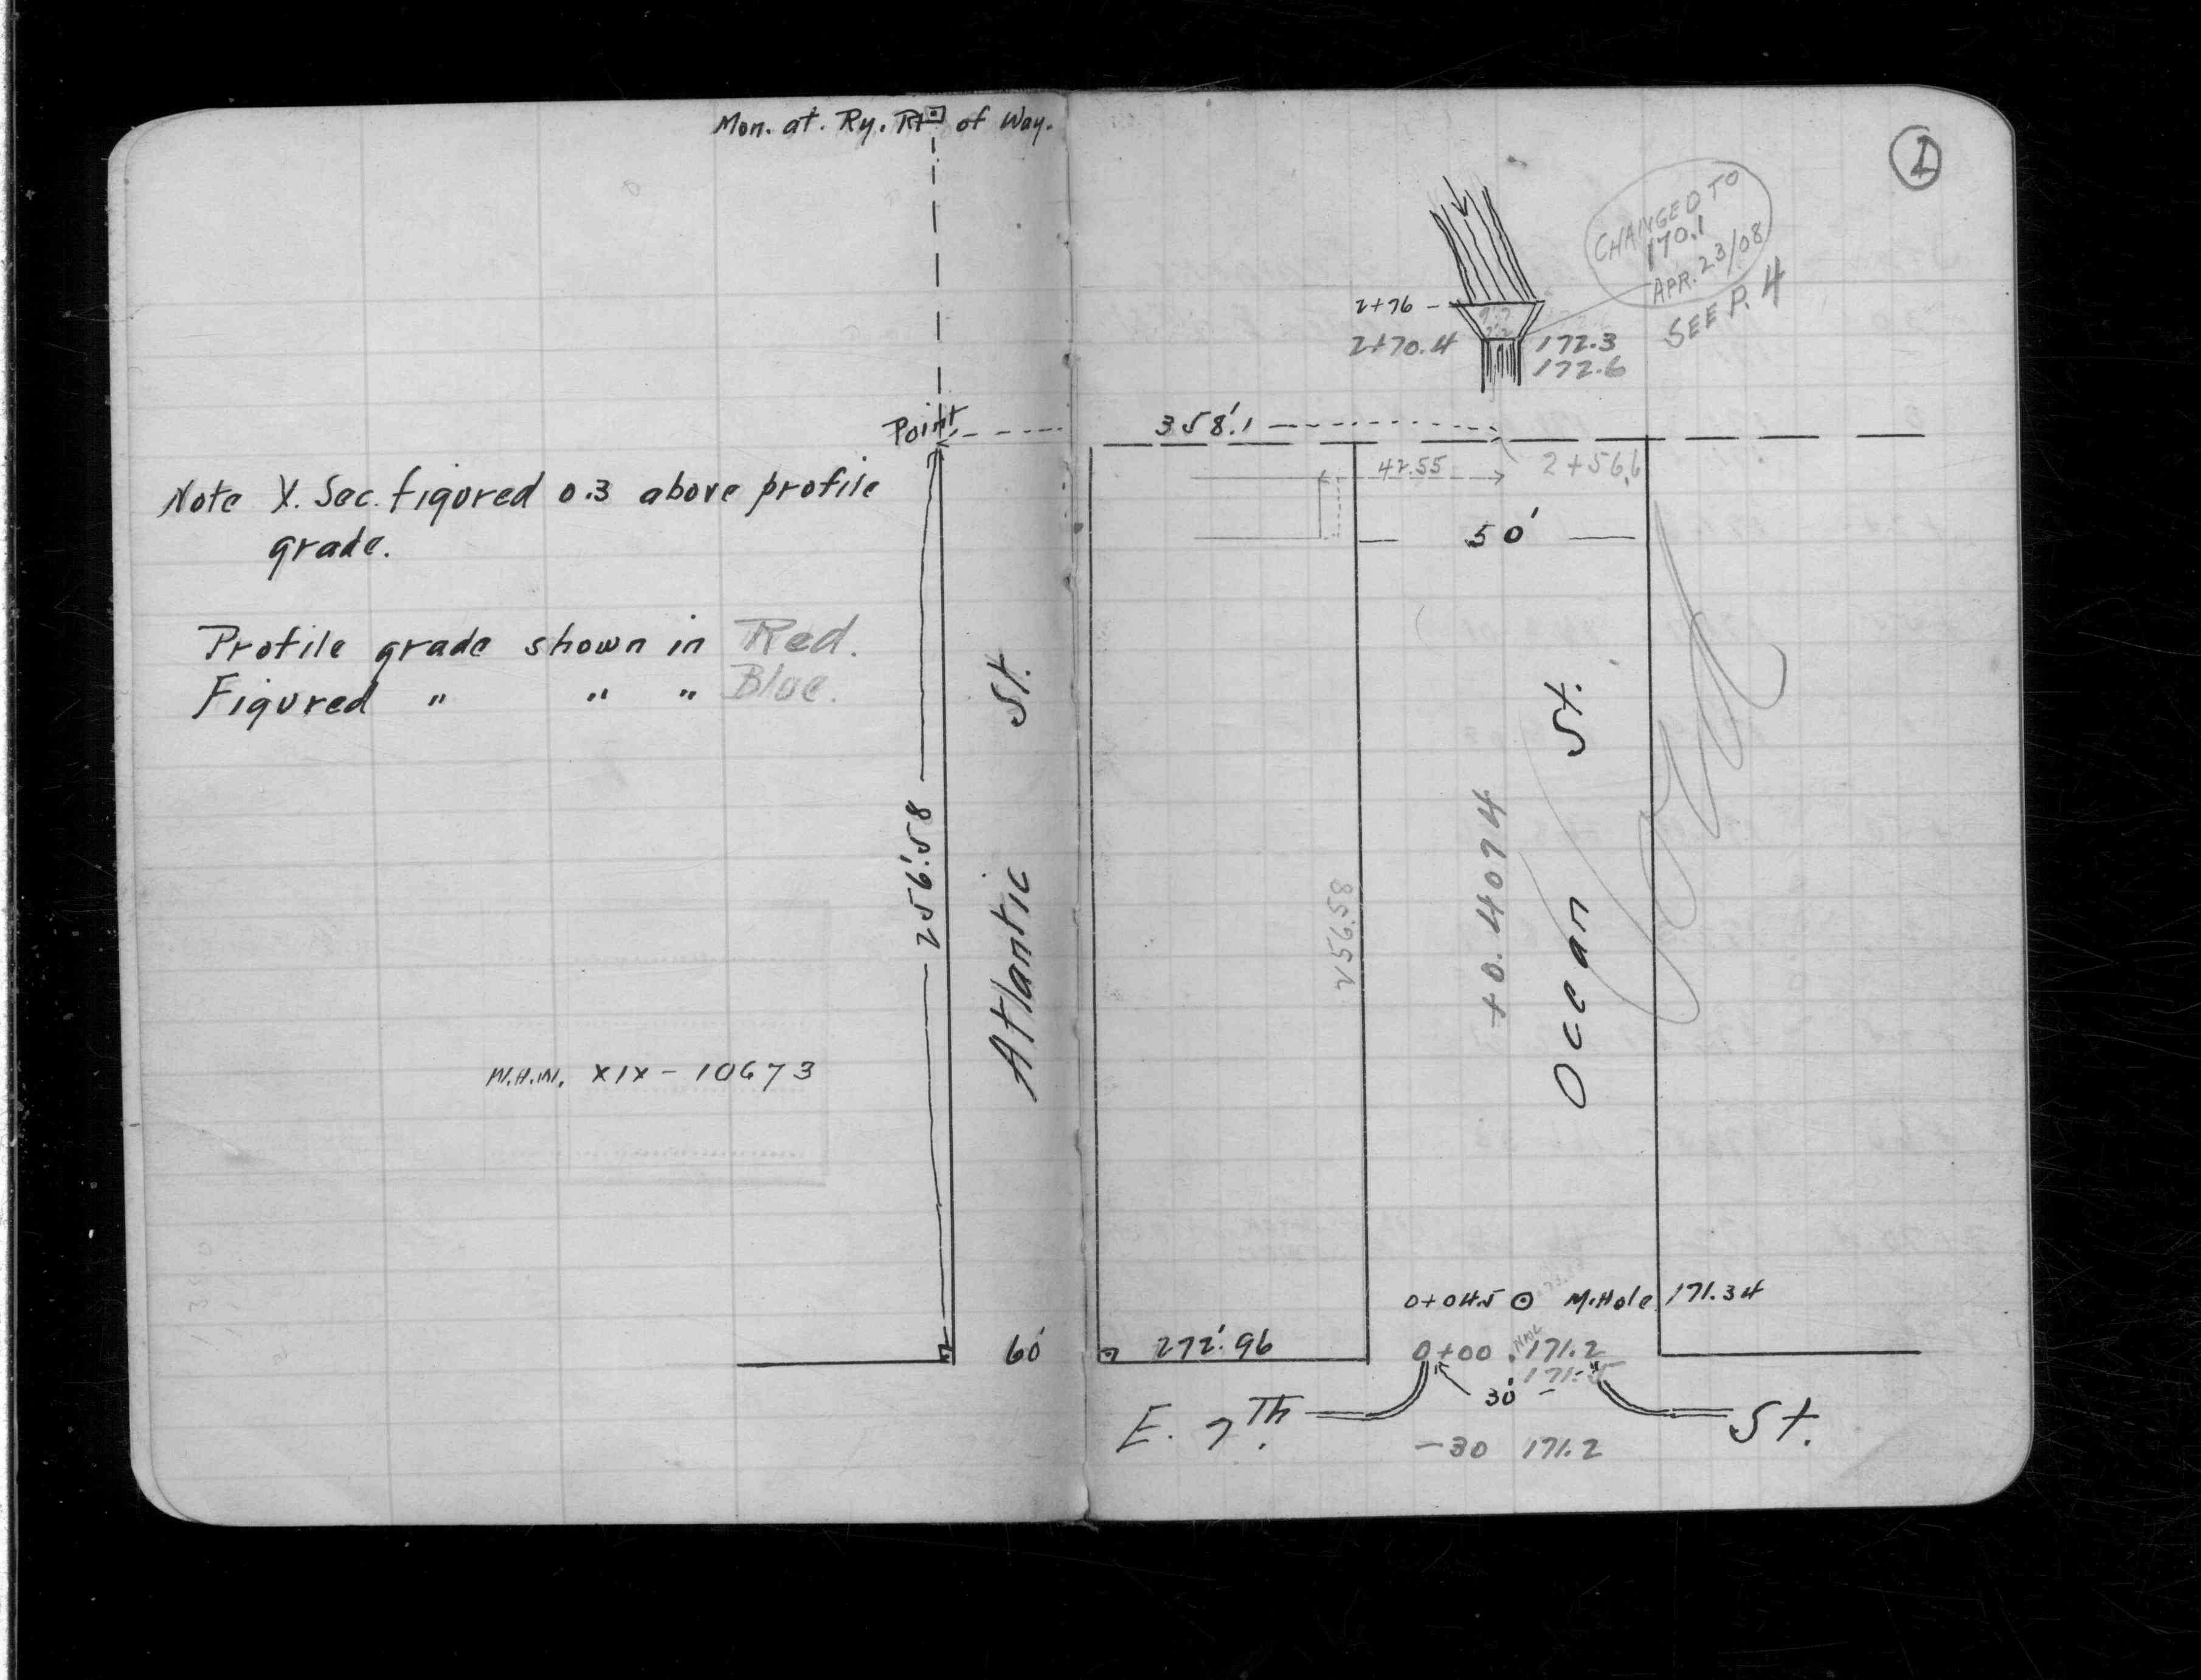 Mon. at. Ry. Rt of Way.
Point
Note X. Sec. figured 0.3 above profile
grade.
Profile grade shown in Red.
Figured " " " Blue.
256'.58
Atlantic St.
W.H.W. XIX - 10673
60'
1
CHANGED TO
170.1
APR. 23/08
SEE P. 4
2+76
2+70.4
172.3
172.6
358'.1
42.55
2+56.6
50'
256.58
+0.4074
Ocean St.
0+04.5 M.Hole 171.34
272'.96
0+00 171.2
171.5
30'
E. 7th. St.
-30 171.2